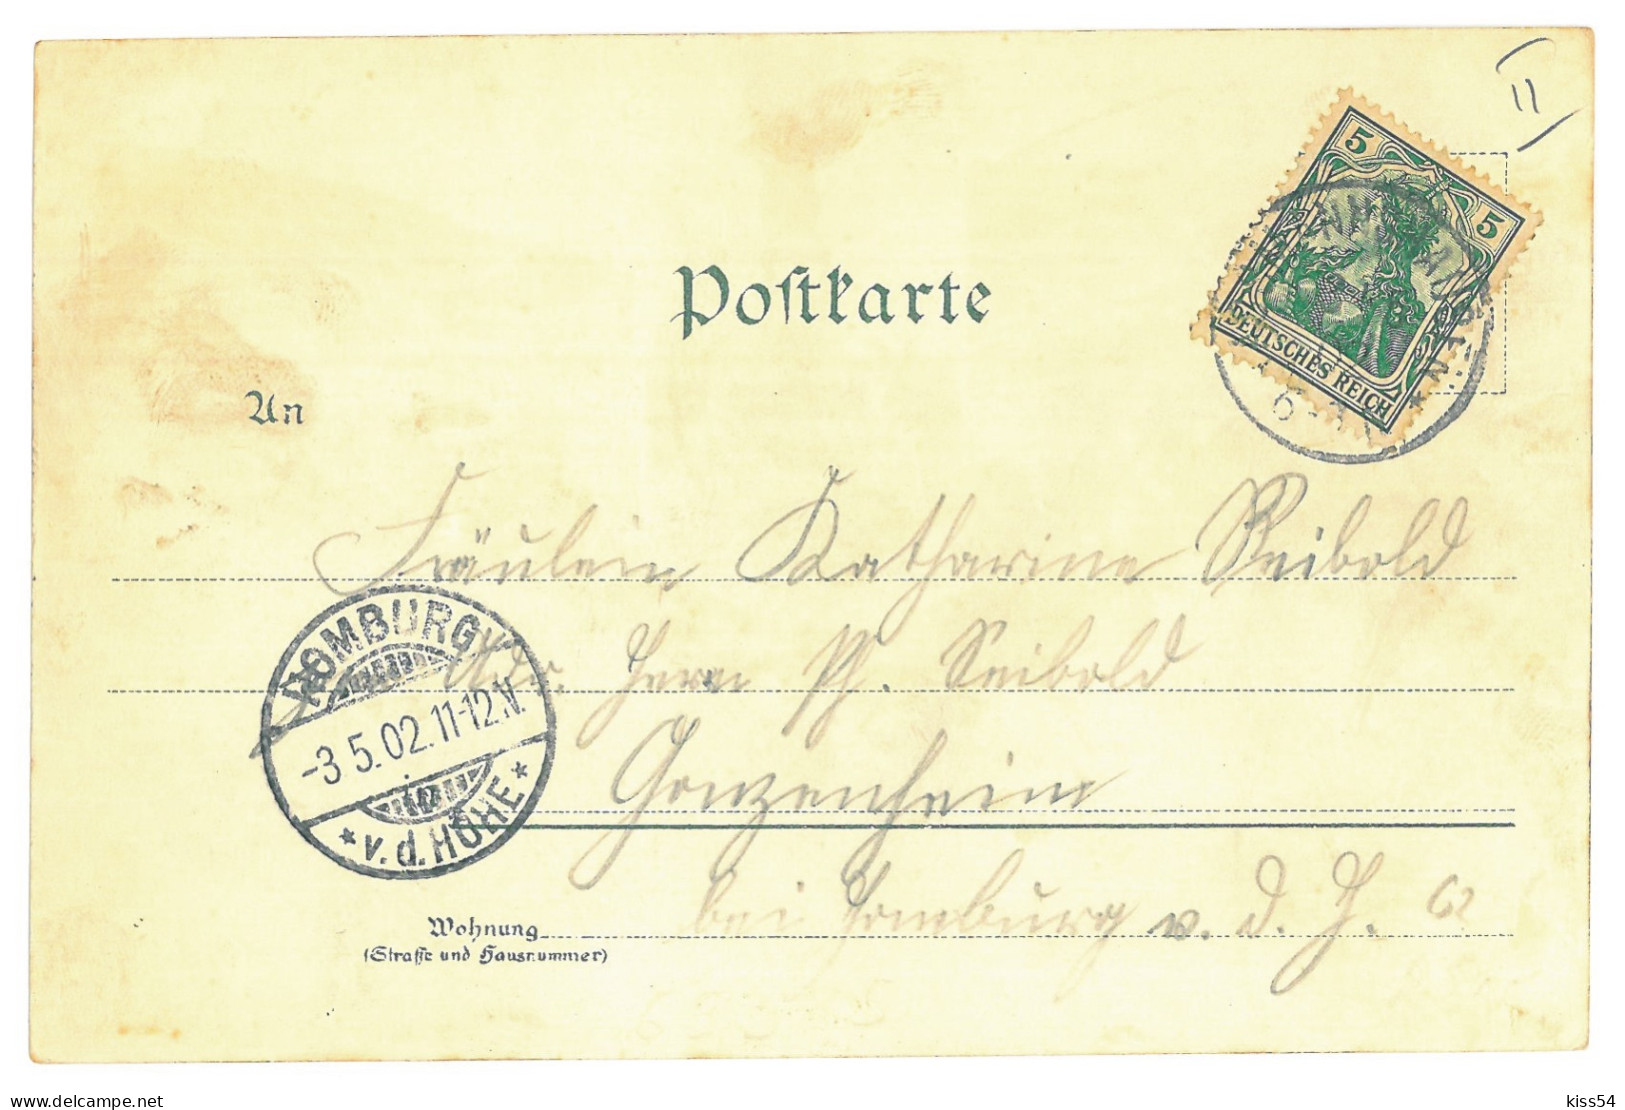 11
Postkarte
5 5
DEUTSCHES REICH
6-7
An
Fräulein Katharine Seibold
Adr. Herrn Ph. Seibold
Gonzenheim
bei Homburg v. d. H.
HOMBURG
-3 5.02.11-12.V.
* v. d. HÖHE *
Wohnung
(Straße und Hausnummer)
delcampe.net
kiss54